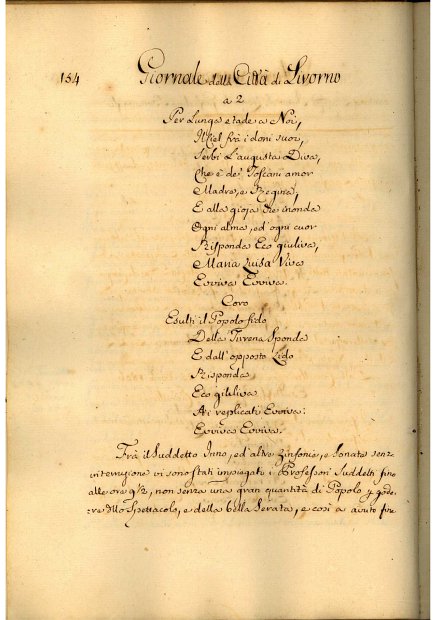 154 Giornale della Città di Livorno
a 2
Per Lunga etade a Noi,
Il Ciel frà i doni suoi,
Serbi L'augusta Diva,
Che è de' Toscani amor
Madre, e Regina,
E alla gioja che inonda
Ogni alma, ed' ogni cuor
Risponda Eco giuliva,
Maria Luisa Viva
Evviva Evviva.
Coro
Esulti il Popolo fido
Della Tirrena Sponda
E dall' opposto Lido
Risponda
Eco giuliva
Ai replicati Evviva.
Evviva Evviva.
Frà il Suddetto Inno, ed' altre Sinfonie, e Sonate senz'
interruzione vi sono stati impiegati i Professori Suddetti fino
alle ore 9½, non senza una gran quantità di Popolo p gode-
re dello Spettacolo, e della bella Serata, e così a aiuto fine